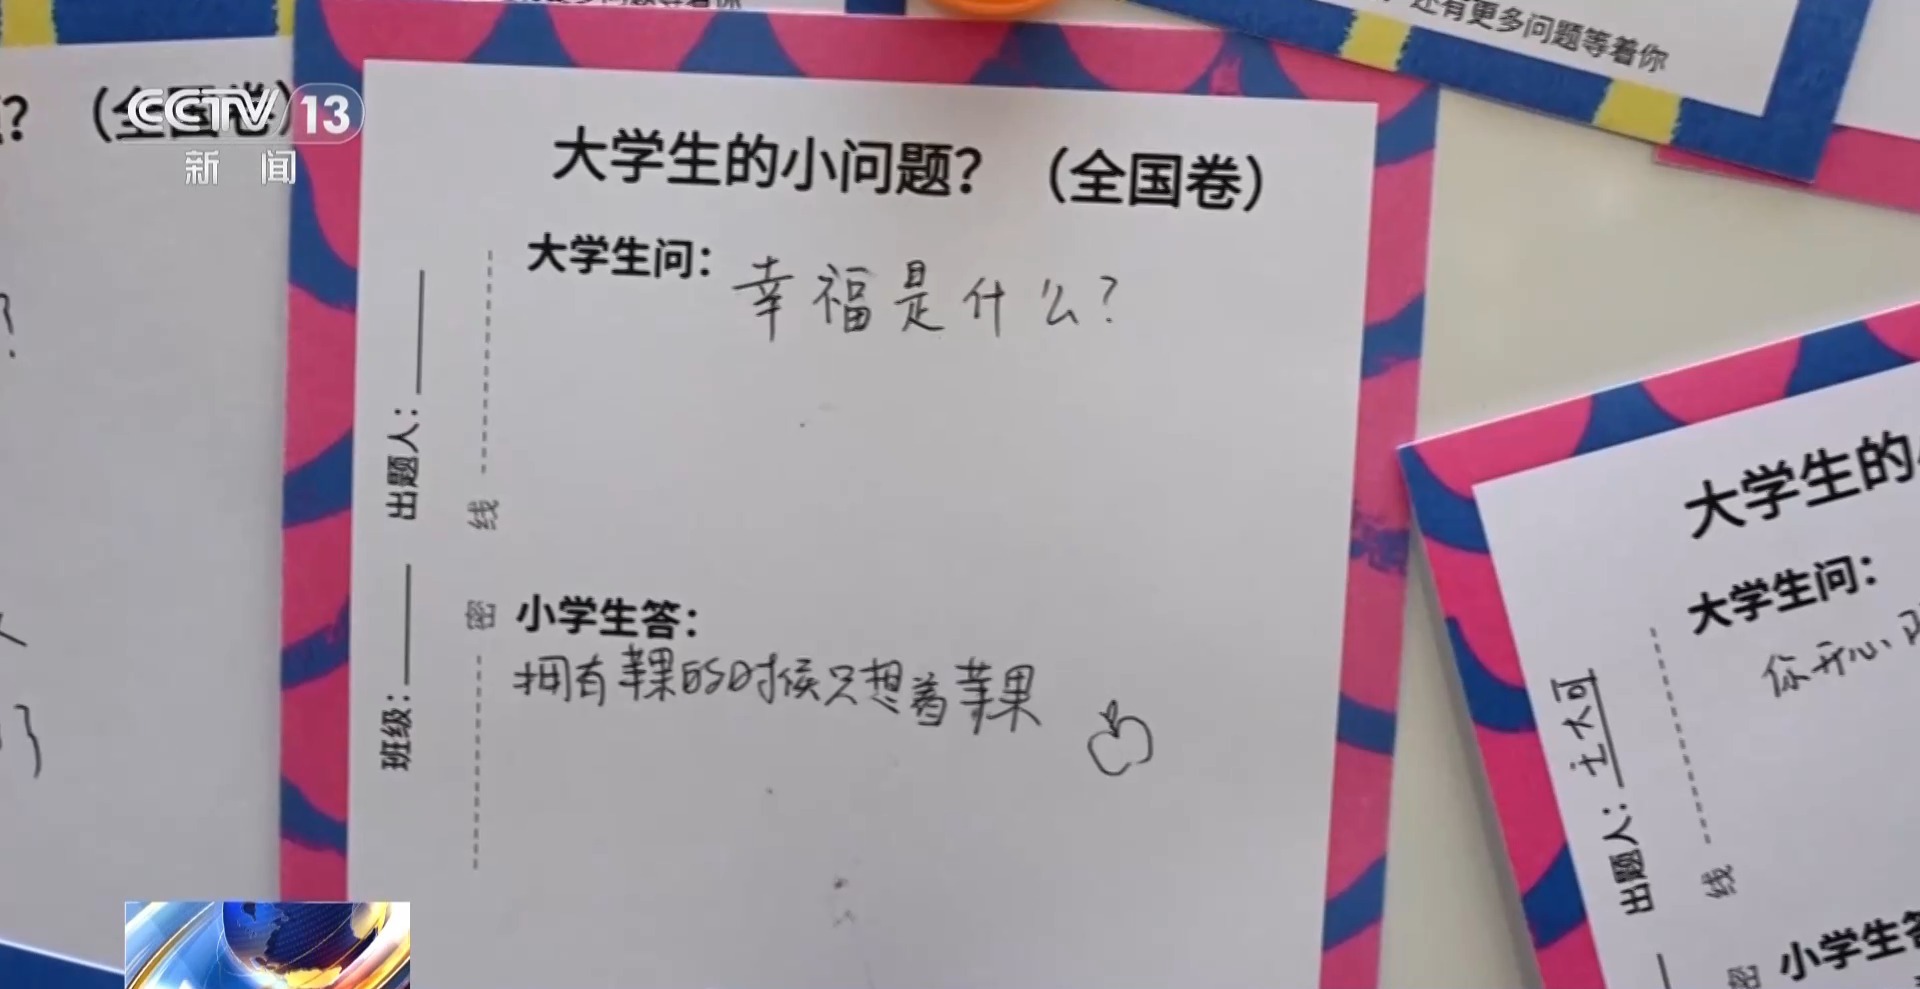 还有更多问题等着你
？（全国卷）
CCTV 13
新闻
大学生的小问题？（全国卷）
大学生问：
幸福是什么？
小学生答：
拥有苹果的时候只想着苹果
班级：
出题人：
密
线
大学生的
大学生问：
你开心
小学生答
出题人：
密
线